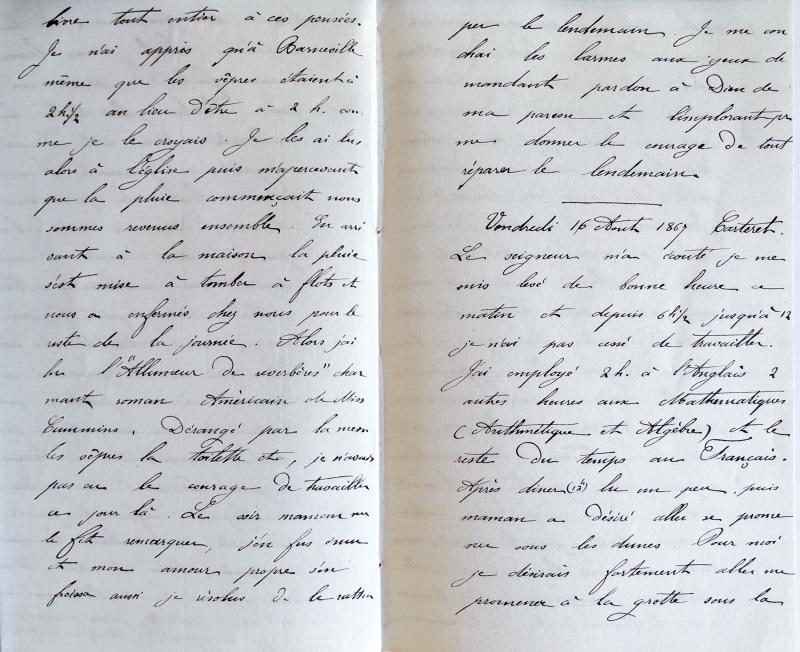 livre tout entier à ces pensées.
Je n'ai appris qu'à Barneville
même que les vêpres étaient à
2h1/2 au lieu d'être à 2 h. com
me je le croyais. Je les ai lus
alors à l'église puis m'apercevant
que la pluie commençait nous
sommes revenus ensemble. En arri
vant à la maison la pluie
s'est mise à tomber à flots et
nous a enfermés chez nous pour le
reste de la journée. Alors j'ai
lu l'"Allumeur de reverbères" char
mant roman Américain de Miss
Cummins. Dérangé par la messe
les vêpres la toilette etc, je n'avais
pas eu le courage de travailler
ce jour là. Le soir maman me
le fit remarquer, j'en fus ému
et mon amour propre s'en
froissa aussi je résolus de le rattra
per le lendemain. Je me cou
chai les larmes aux yeux de
mandant pardon à Dieu de
ma paresse et l'implorant pr
me donner le courage de tout
réparer le lendemain.
Vendredi 16 Aout 1867 Carteret.
Le seigneur m'a écouté je me
suis levé de bonne heure ce
matin et depuis 6h1/2 jusqu'à 12
je n'ai pas cessé de travailler.
J'ai employé 2h. à l'Anglais 2
autres heures aux Mathematiques
(Arithmétique et Algèbre) et le
reste du temps au Français.
Après diner lu un peu, puis
maman a désiré aller se prome
ner sous les dunes. Pour moi
je désirais fortement aller me
promener à la grotte sous la